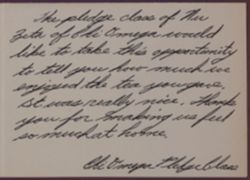 The pledge class of Nu
Zeta of Chi Omega would
like to take this opportunity
to tell you how much we
enjoyed the tea you gave.
It was really nice. Thank
you for making us feel
so much at home.
Chi Omega Pledge Class